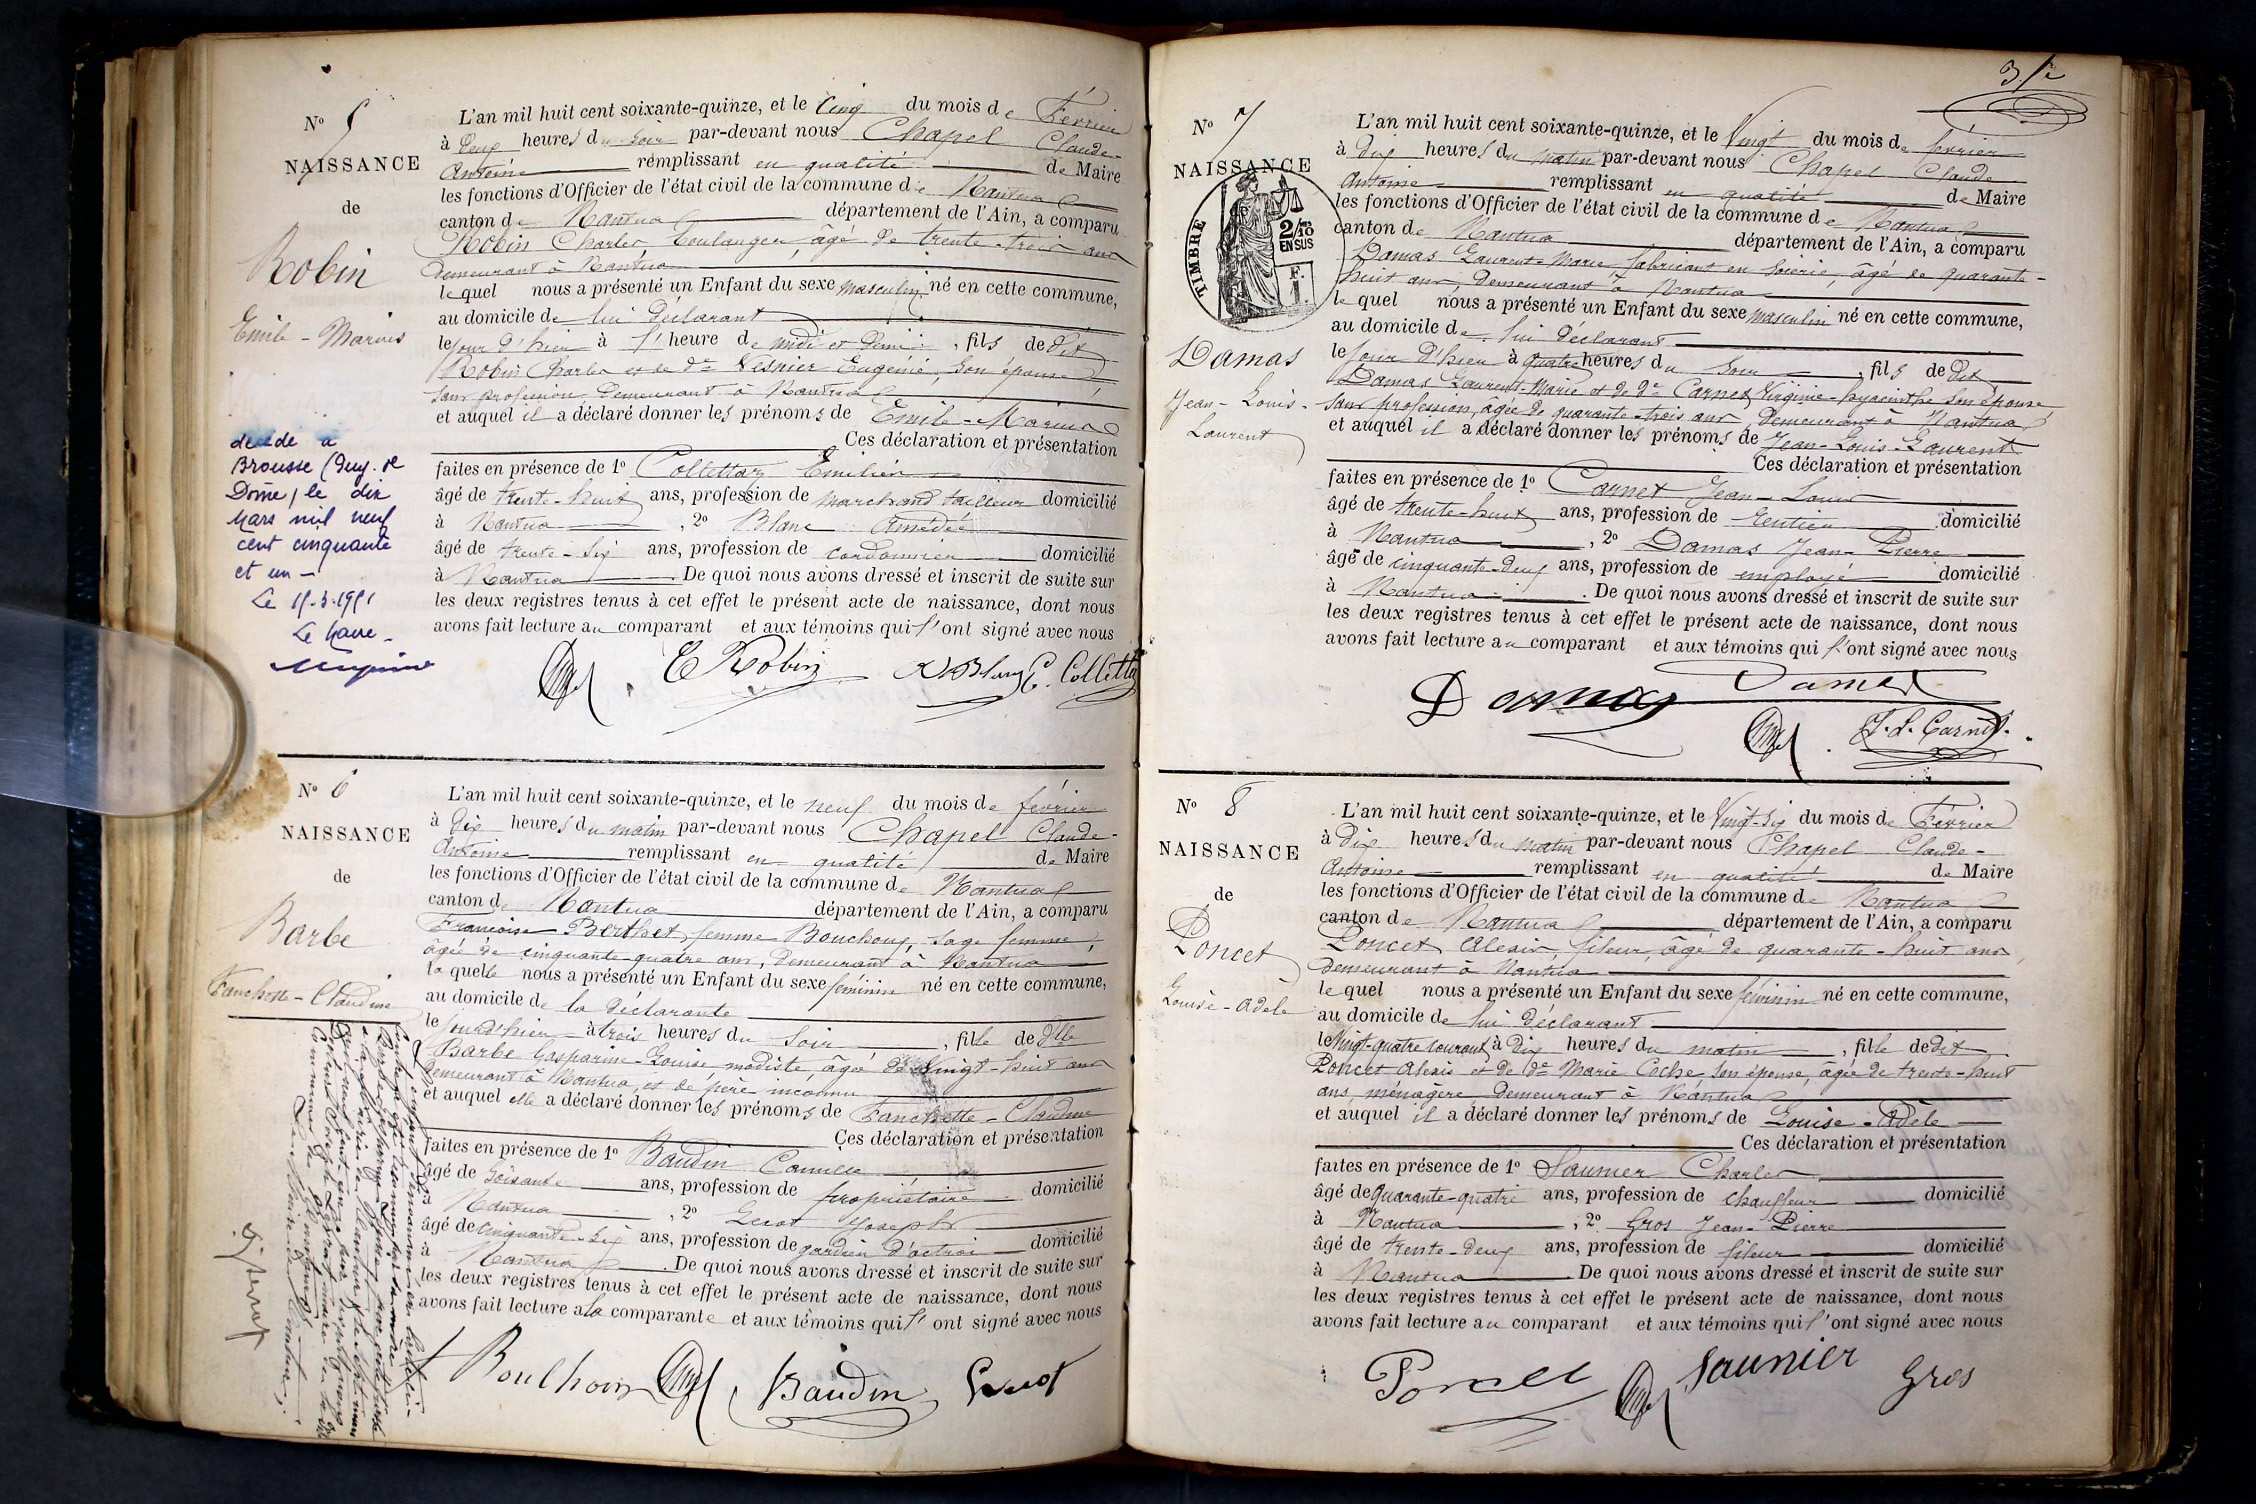 N° 5
NAISSANCE
de
Robin
Emile-Marius
décédé à
Brousse (Puy. de
Dôme) le dix
Mars mil neuf
cent cinquante
et un -
Le Maire -
L'an mil huit cent soixante-quinze, et le cinq du mois de Février
à Deux heures du soir par-devant nous Chapel Claude-
Antoine remplissant en qualité de Maire
les fonctions d'Officier de l'état civil de la commune de Nantua
canton de Nantua département de l'Ain, a comparu
Robin Charles, boulanger, âgé de trente-trois ans
demeurant à Nantua
lequel nous a présenté un Enfant du sexe masculin né en cette commune,
au domicile de lui déclarant
le jour d'hier à l'heure de midi et demi, fils de dit
Robin Charles et de de Vesnier Eugénie, son épouse
sans profession demeurant à Nantua
et auquel il a déclaré donner les prénoms de Emile-Marius
Ces déclaration et présentation
faites en présence de 1° Collettaz Emilien
âgé de trente-huit ans, profession de marchand tailleur domicilié
à Nantua, 2° Blanc Amédée
âgé de trente-six ans, profession de cordonnier domicilié
à Nantua. De quoi nous avons dressé et inscrit de suite sur
les deux registres tenus à cet effet le présent acte de naissance, dont nous
avons fait lecture au comparant et aux témoins qui l'ont signé avec nous
C Robin A Blanc E. Colletta
N° 6
NAISSANCE
de
Barbe
Fanchette-Claudine
L'an mil huit cent soixante-quinze, et le neuf du mois de février
à Dix heures du matin par-devant nous Chapel Claude-
Antoine remplissant en qualité de Maire
les fonctions d'Officier de l'état civil de la commune de Nantua
canton de Nantua département de l'Ain, a comparu
Françoise Berthet, femme Bouchoux, sage femme,
âgée de cinquante-quatre ans, demeurant à Nantua
laquelle nous a présenté un Enfant du sexe féminin né en cette commune,
au domicile de la déclarante
le jour d'hier à trois heures du soir, fille de dlle
Barbe Gasparine-Louise modiste, âgée de vingt-huit ans
demeurant à Nantua, et de père inconnu
et auquel elle a déclaré donner les prénoms de Fanchette-Claudine
Ces déclaration et présentation
faites en présence de 1° Baudin Camille
âgé de soixante ans, profession de propriétaire domicilié
Nantua, 2° Joseph
âgé de cinquante-six ans, profession de gardien d'octroi domicilié
à Nantua. De quoi nous avons dressé et inscrit de suite sur
les deux registres tenus à cet effet le présent acte de naissance, dont nous
avons fait lecture à la comparante et aux témoins qui l'ont signé avec nous
Baudin
N° 7
NAISSANCE
TIMBRE
2/10
EN SUS
F.
1
Damas
Jean-Louis-
Laurent
L'an mil huit cent soixante-quinze, et le Vingt du mois de février
à dix heures du matin par-devant nous Chapel Claude
Antoine remplissant en qualité de Maire
les fonctions d'Officier de l'état civil de la commune de Nantua
canton de Nantua département de l'Ain, a comparu
Damas Laurent-Marie, fabricant en soierie, âgé de quarante-
huit ans, demeurant à Nantua
lequel nous a présenté un Enfant du sexe masculin né en cette commune,
au domicile de lui déclarant
le jour d'hier à quatre heures du soir, fils de dit
Damas Laurent-Marie et de de Carnet Virginie-hyacinthe son épouse
sans profession, âgée de quarante-trois ans, demeurant à Nantua
et auquel il a déclaré donner les prénoms de Jean-Louis-Laurent
Ces déclaration et présentation
faites en présence de 1° Carnet Jean-Louis
âgé de trente-huit ans, profession de rentier domicilié
à Nantua, 2° Damas Jean-Pierre
âgé de cinquante-deux ans, profession de employé domicilié
à Nantua. De quoi nous avons dressé et inscrit de suite sur
les deux registres tenus à cet effet le présent acte de naissance, dont nous
avons fait lecture au comparant et aux témoins qui l'ont signé avec nous
Damas Damas
J. L. Carnet
N° 8
NAISSANCE
de
Poncet
Louise-Adèle
L'an mil huit cent soixante-quinze, et le Vingt-six du mois de Février
à Dix heures du matin par-devant nous Chapel Claude-
Antoine remplissant en qualité de Maire
les fonctions d'Officier de l'état civil de la commune de Nantua
canton de Nantua département de l'Ain, a comparu
Poncet Alexis, fileur, âgé de quarante-huit ans
demeurant à Nantua
lequel nous a présenté un Enfant du sexe féminin né en cette commune,
au domicile de lui déclarant
le Vingt-quatre courant à Dix heures du matin, fille de dit
Poncet Alexis et de de Marie Coche son épouse, âgée de trente-huit
ans, ménagère, demeurant à Nantua
et auquel il a déclaré donner les prénoms de Louise-Adèle
Ces déclaration et présentation
faites en présence de 1° Saunier Charles
âgé de Quarante-quatre ans, profession de chauffeur domicilié
à Nantua, 2° Gros Jean-Pierre
âgé de trente-deux ans, profession de fileur domicilié
à Nantua. De quoi nous avons dressé et inscrit de suite sur
les deux registres tenus à cet effet le présent acte de naissance, dont nous
avons fait lecture au comparant et aux témoins qui l'ont signé avec nous
Poncet Saunier Gros